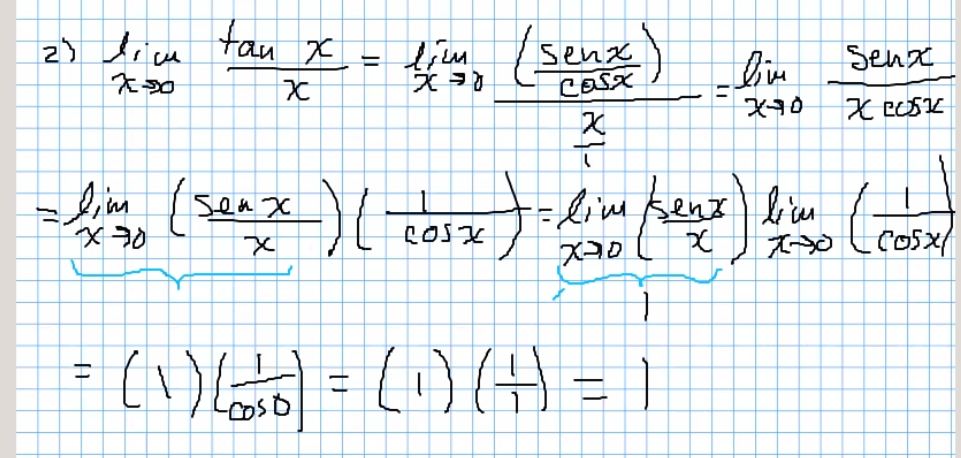 2) lim x→0 tan x / x = lim x→0 (sen x / cos x) / (x / 1) = lim x→0 sen x / x cos x
= lim x→0 (sen x / x) (1 / cos x) = lim x→0 (sen x / x) lim x→0 (1 / cos x)
1
= (1) (1 / cos 0) = (1) (1 / 1) = 1